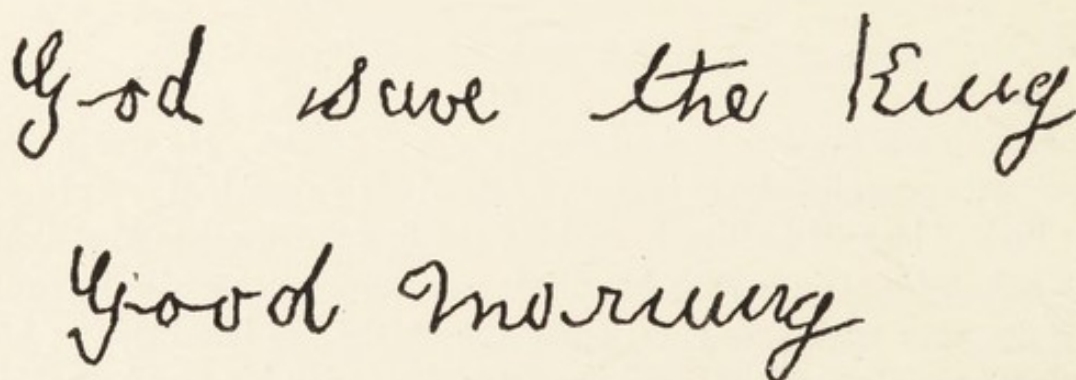 God save the King
Good morning